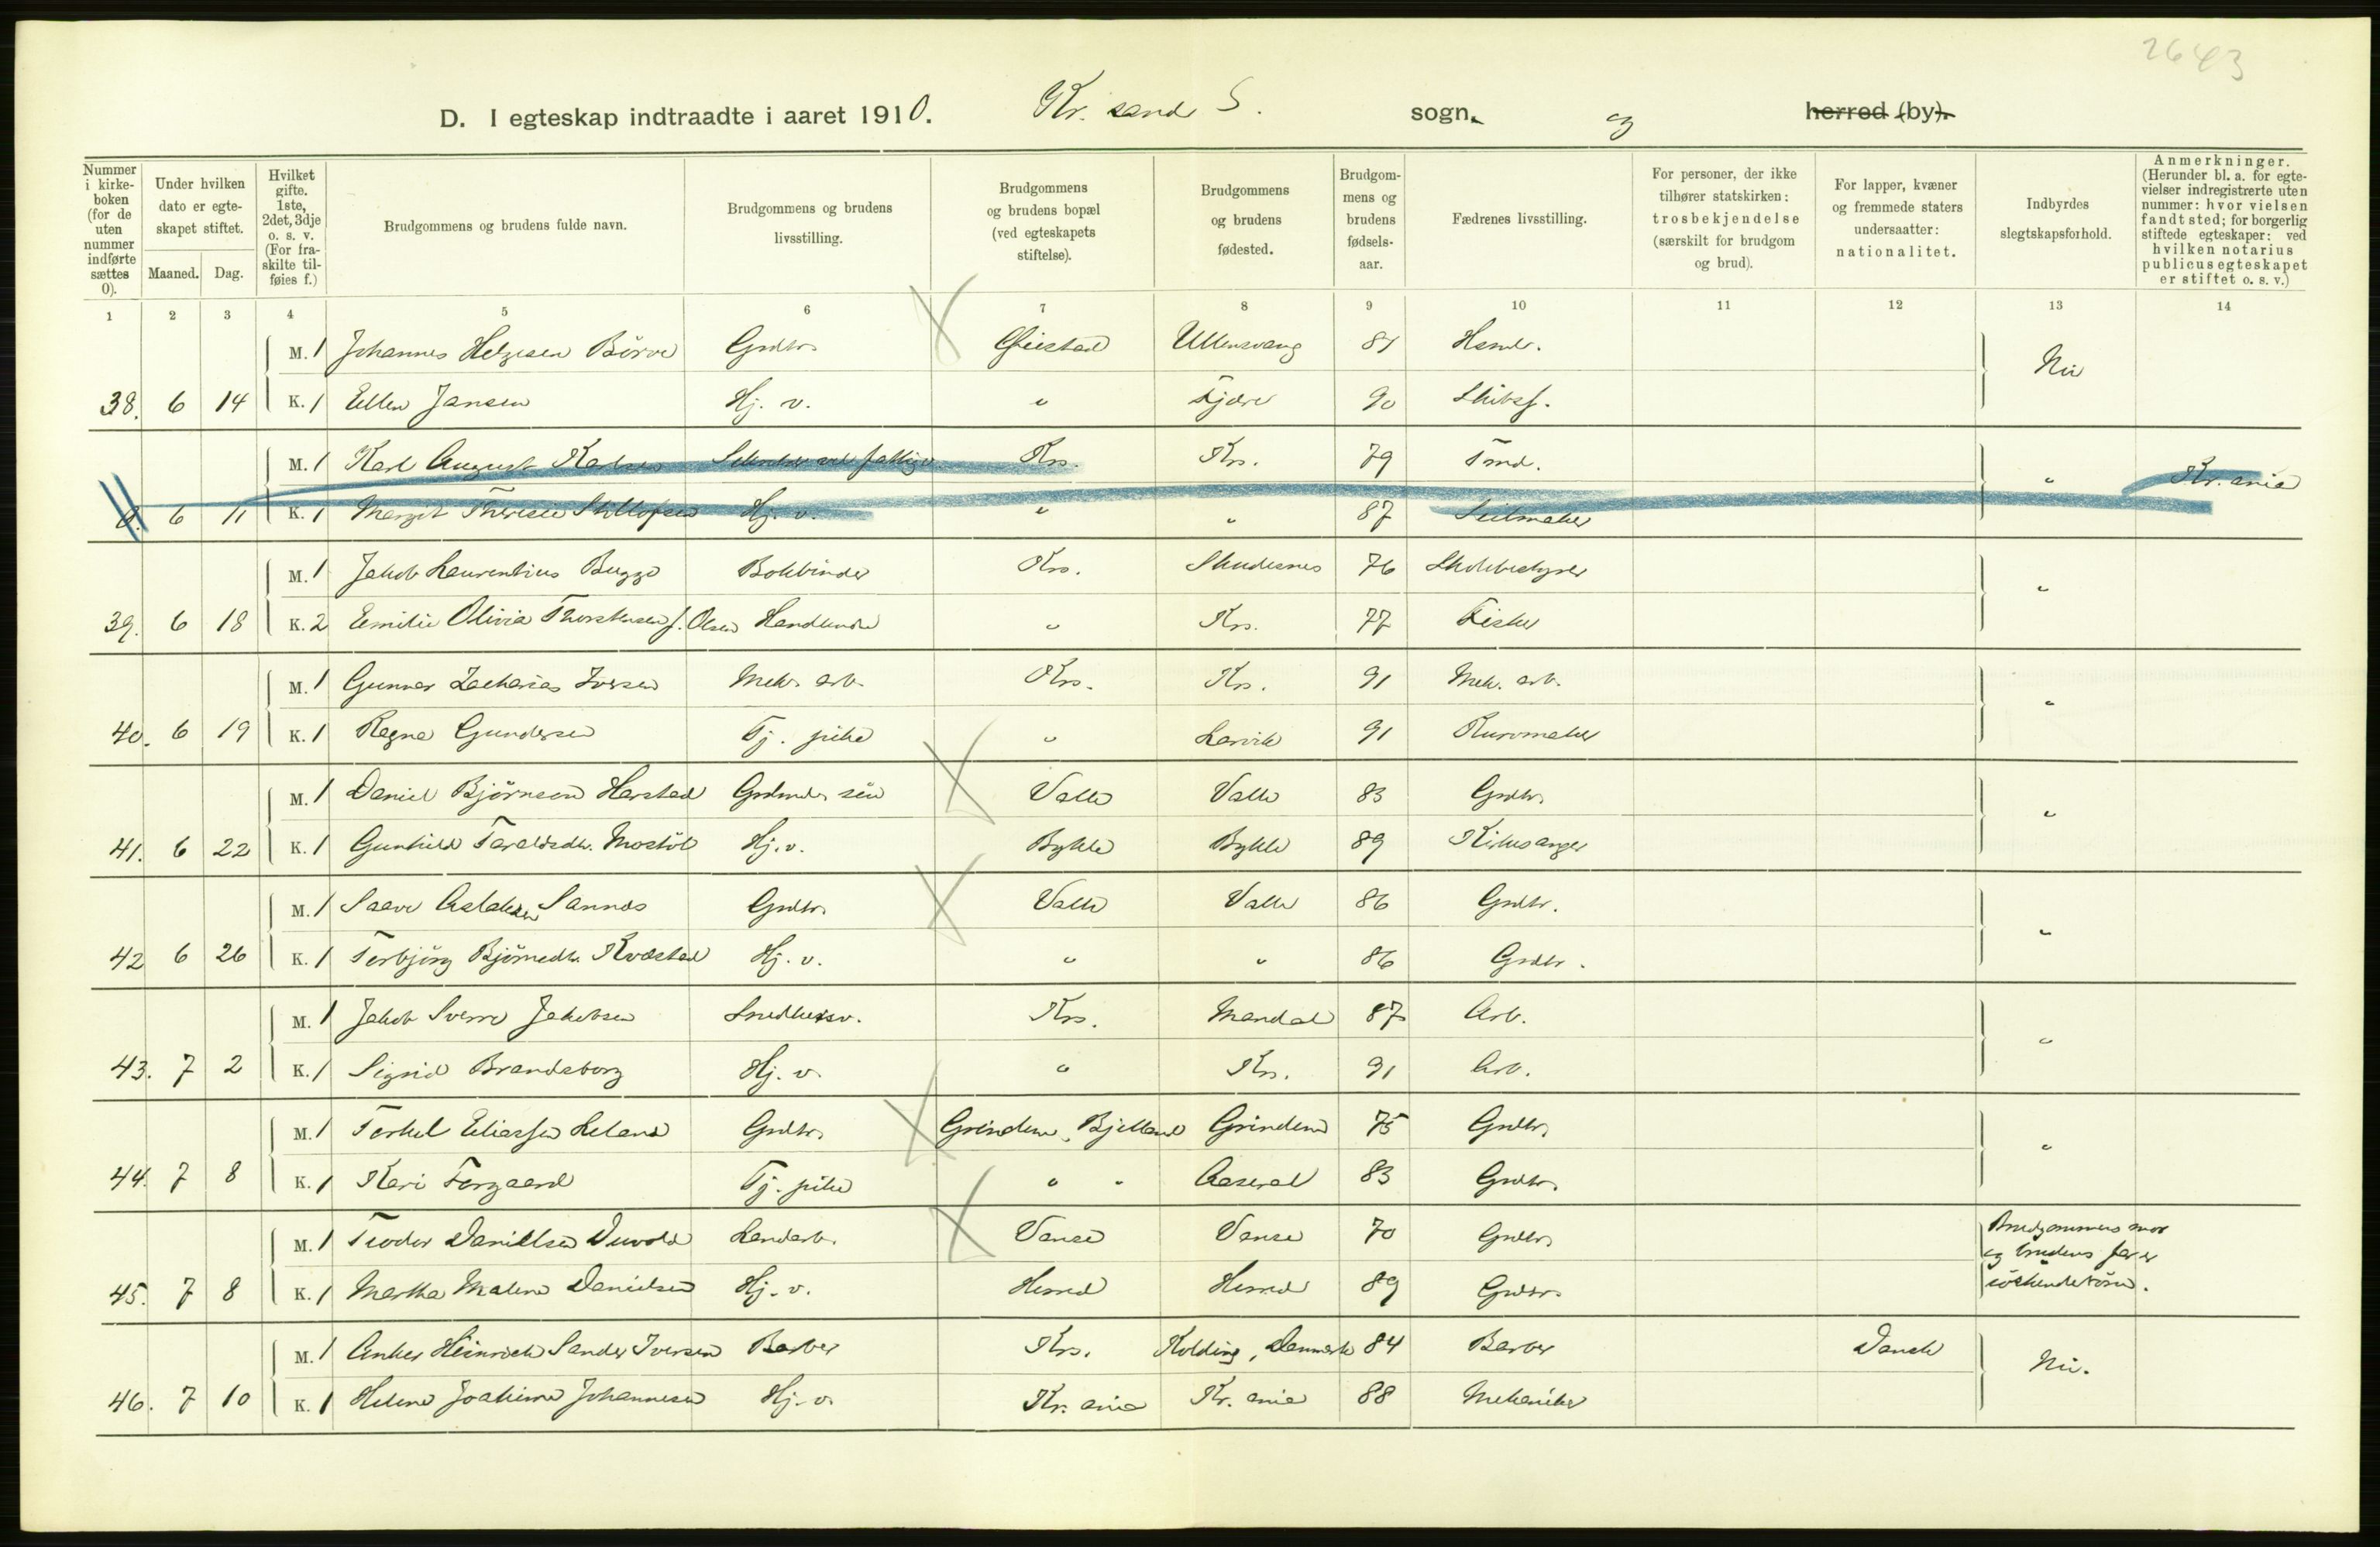 2643
D. I egteskap indtraadte i aaret 1910. Kr. sand S. sogn. og herred (by).
Nummer i kirkeboken (for de uten nummer indførte sættes 0).
Under hvilken dato er egteskapet stiftet.
Maaned. Dag.
Hvilket gifte. 1ste, 2det, 3dje o. s. v. (For fraskilte tilføies f.)
Brudgommens og brudens fulde navn.
Brudgommens og brudens livsstilling.
Brudgommens og brudens bopæl (ved egteskapets stiftelse).
Brudgommens og brudens fødested.
Brudgommens og brudens fødselsaar.
Fædrenes livsstilling.
For personer, der ikke tilhører statskirken: trosbekjendelse (særskilt for brudgom og brud).
For lapper, kvæner og fremmede staters undersaatter: nationalitet.
Indbyrdes slegtskapsforhold.
Anmerkninger. (Herunder bl. a. for egtevielser indregistrerte uten nummer: hvor vielsen fandt sted; for borgerlig stiftede egteskaper: ved hvilken notarius publicus egteskapet er stiftet o. s. v.)
1 2 3 4 5 6 7 8 9 10 11 12 13 14
M. 1 Johannes Helgesen Börve Grdbr. Øiestad Ullensvang 81 Handr. Nei
38. 6 14 K. 1 Ellen Jansen Hj. v. " Fjære 90 Skibsf.
M. 1 Karl August Karlsen Krs. Krs. 79 Tmd. " Kr. ania
0. 6 11 K. 1 Margit Therese Hj. v. " " 87 Seilmaker
M. 1 Jakob Laurentius Bugge Bokbinder Krs. Skudesnes 76 Skolebestyrer "
39. 6 18 K. 2 Emilie Olivia Thorstensen f. Olsen Handlende " Krs. 77 Fisker
M. 1 Gunnar Zacharias Iversen Mek. arb. Krs. Krs. 91 Mek. arb. "
40. 6 19 K. 1 Ragna Gundersen Tj. pike " Larvik 91 Kurvmaker
M. 1 Daniel Björnson Harstad Grdmds sön Valle Valle 83 Grdbr. "
41. 6 22 K. 1 Gunhild Taraldsdtr. Mostöl Hj. v. Bykle Bykle 89 Kirkesanger
M. 1 Saave Aslaksen Sannes Grdbr. Valle Valle 86 Grdbr. "
42 6 26 K. 1 Torbjörg Björnsdtr. Kvæstad Hj. v. " " 86 Grdbr.
M. 1 Jakob Sverre Jakobsen Snedkersv. Krs. Mandal 87 Arb. "
43. 7 2 K. 1 Sigrid Brandsborg Hj. v. " Krs. 91 Arb.
M. 1 Torkel Eliassen Leland Grdbr. Grindem, Bjelland Grindem 75 Grdbr. "
44. 7 8 K. 1 Kari Forgaard Tj. pike " " Aaseral 83 Grdbr.
M. 1 Teodor Danielsen Duvold Landarb. Vanse Vanse 70 Grdbr. Brudgommens mor og brudens far er söskendebörn.
45. 7 8 K. 1 Martha Malene Danielsen Hj. v. Herred Herred 89 Grdbr.
M. 1 Anker Heinrich Sander Iversen Barber Krs. Kolding, Danmark 84 Barber Dansk Nei.
46. 7 10 K. 1 Helene Joakime Johannesen Hj. v. Kr. ania Kr. ania 88 Mekaniker